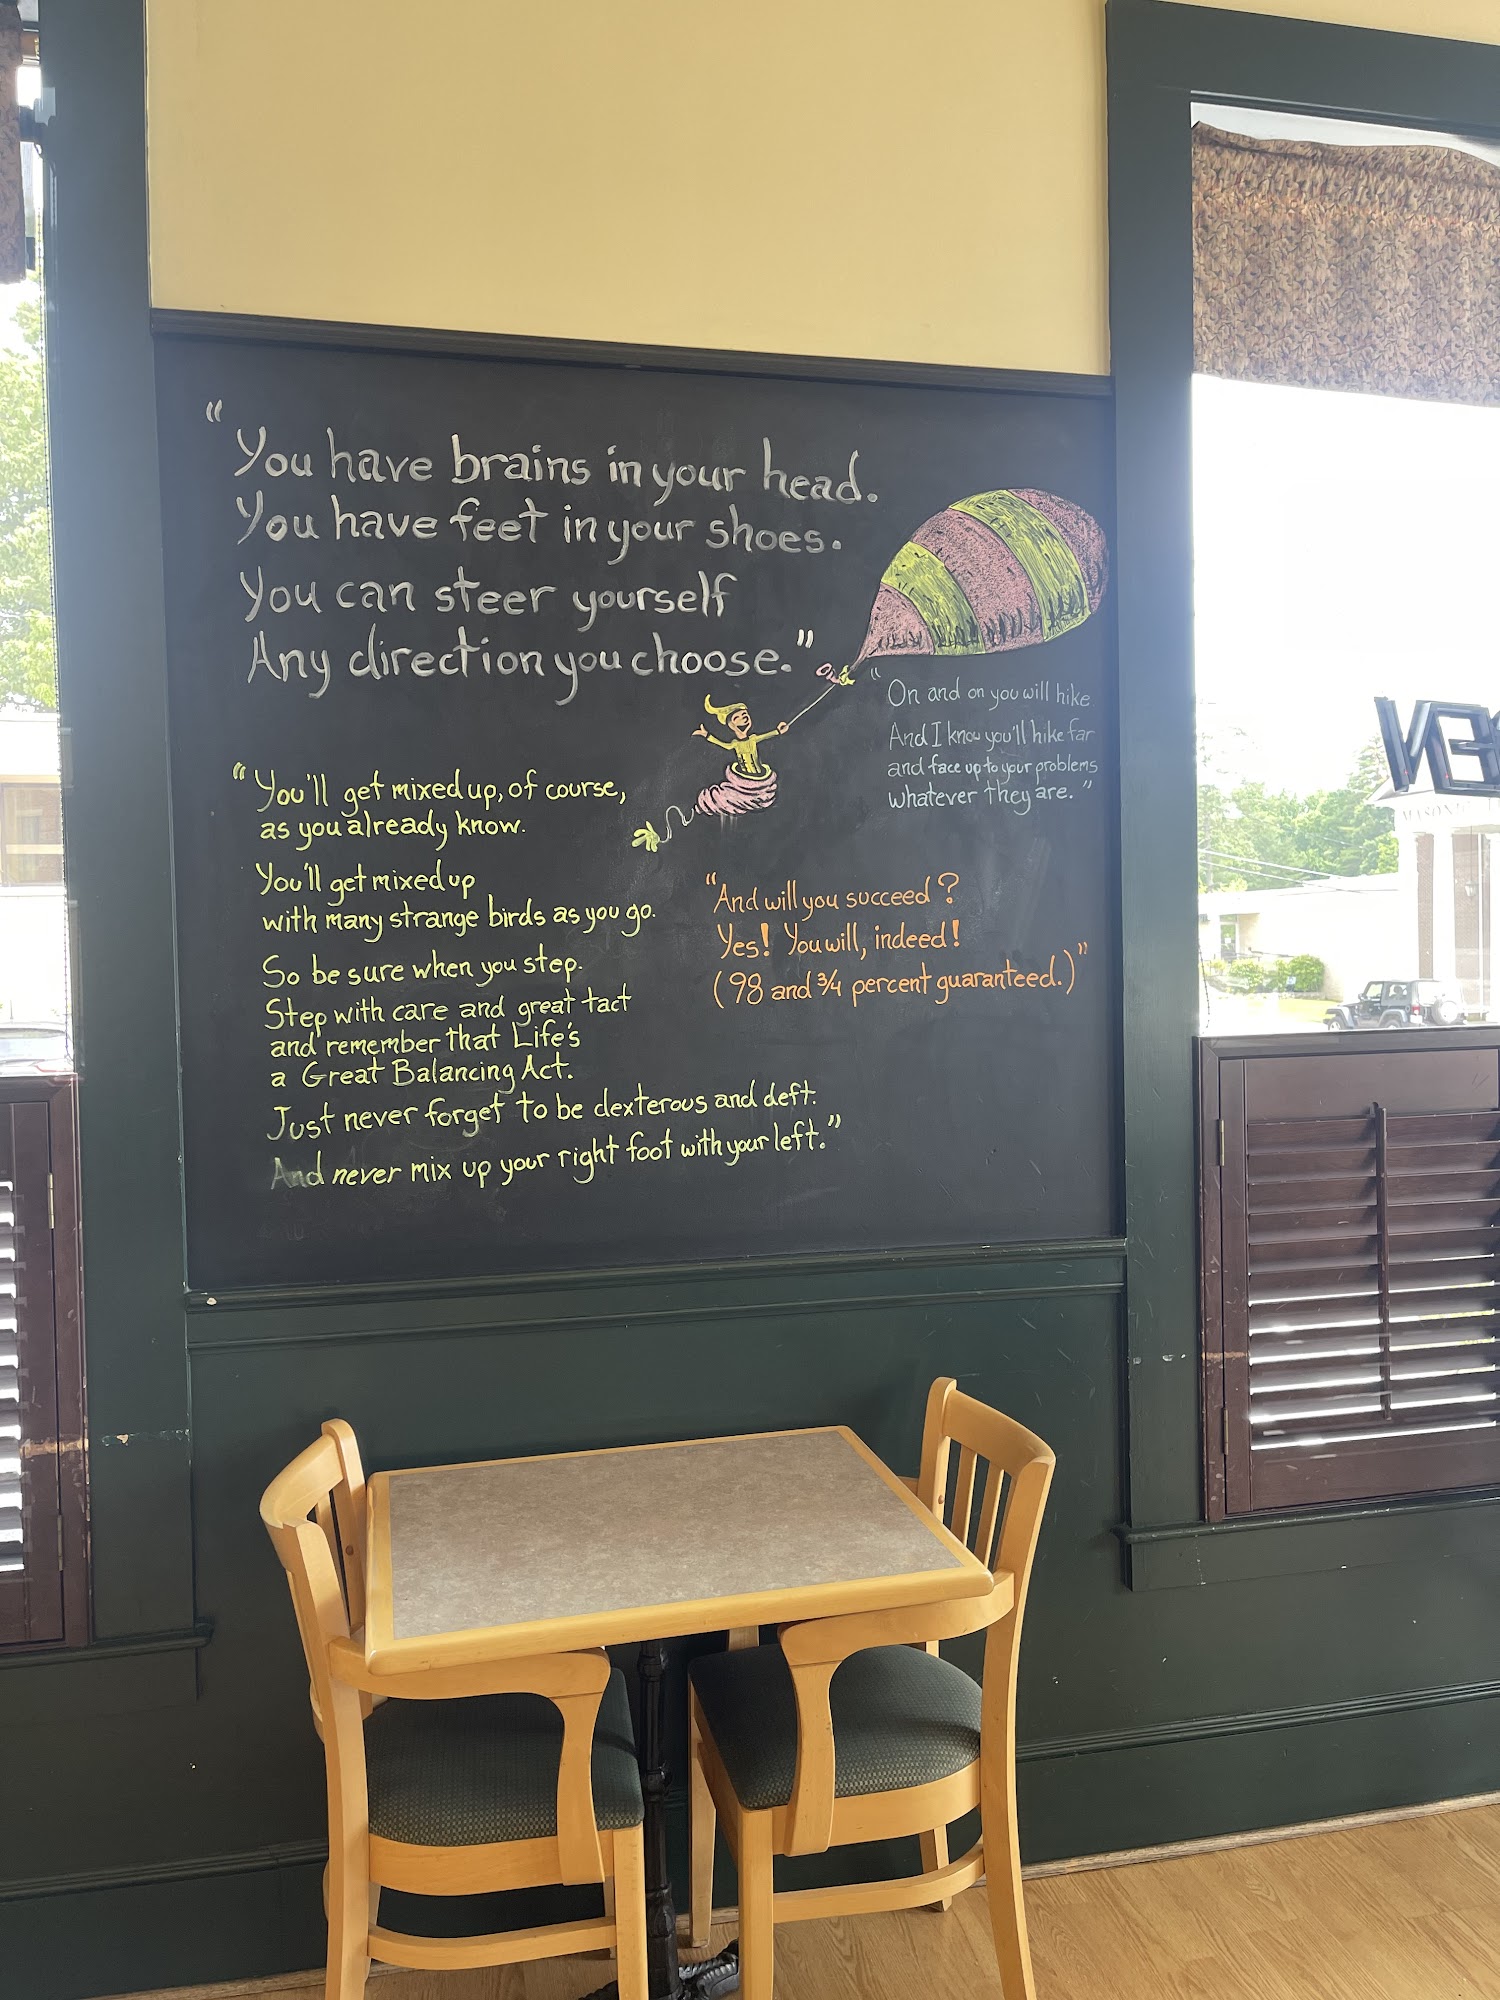 "You have brains in your head.
You have feet in your shoes.
You can steer yourself
Any direction you choose."
"On and on you will hike
And I know you'll hike far
and face up to your problems
whatever they are."
"You'll get mixed up, of course,
as you already know.
You'll get mixed up
with many strange birds as you go.
So be sure when you step.
Step with care and great tact
and remember that Life's
a Great Balancing Act.
Just never forget to be dexterous and deft.
And never mix up your right foot with your left."
"And will you succeed?
Yes! You will, indeed!
(98 and 3/4 percent guaranteed.)"
MASONIC